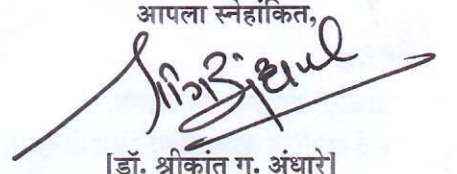 आपला स्नेहांकित,
[डॉ. श्रीकांत ग. अंधारे]